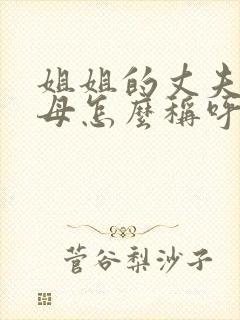 姐姐的丈夫
母怎麼稱呼
菅谷梨沙子